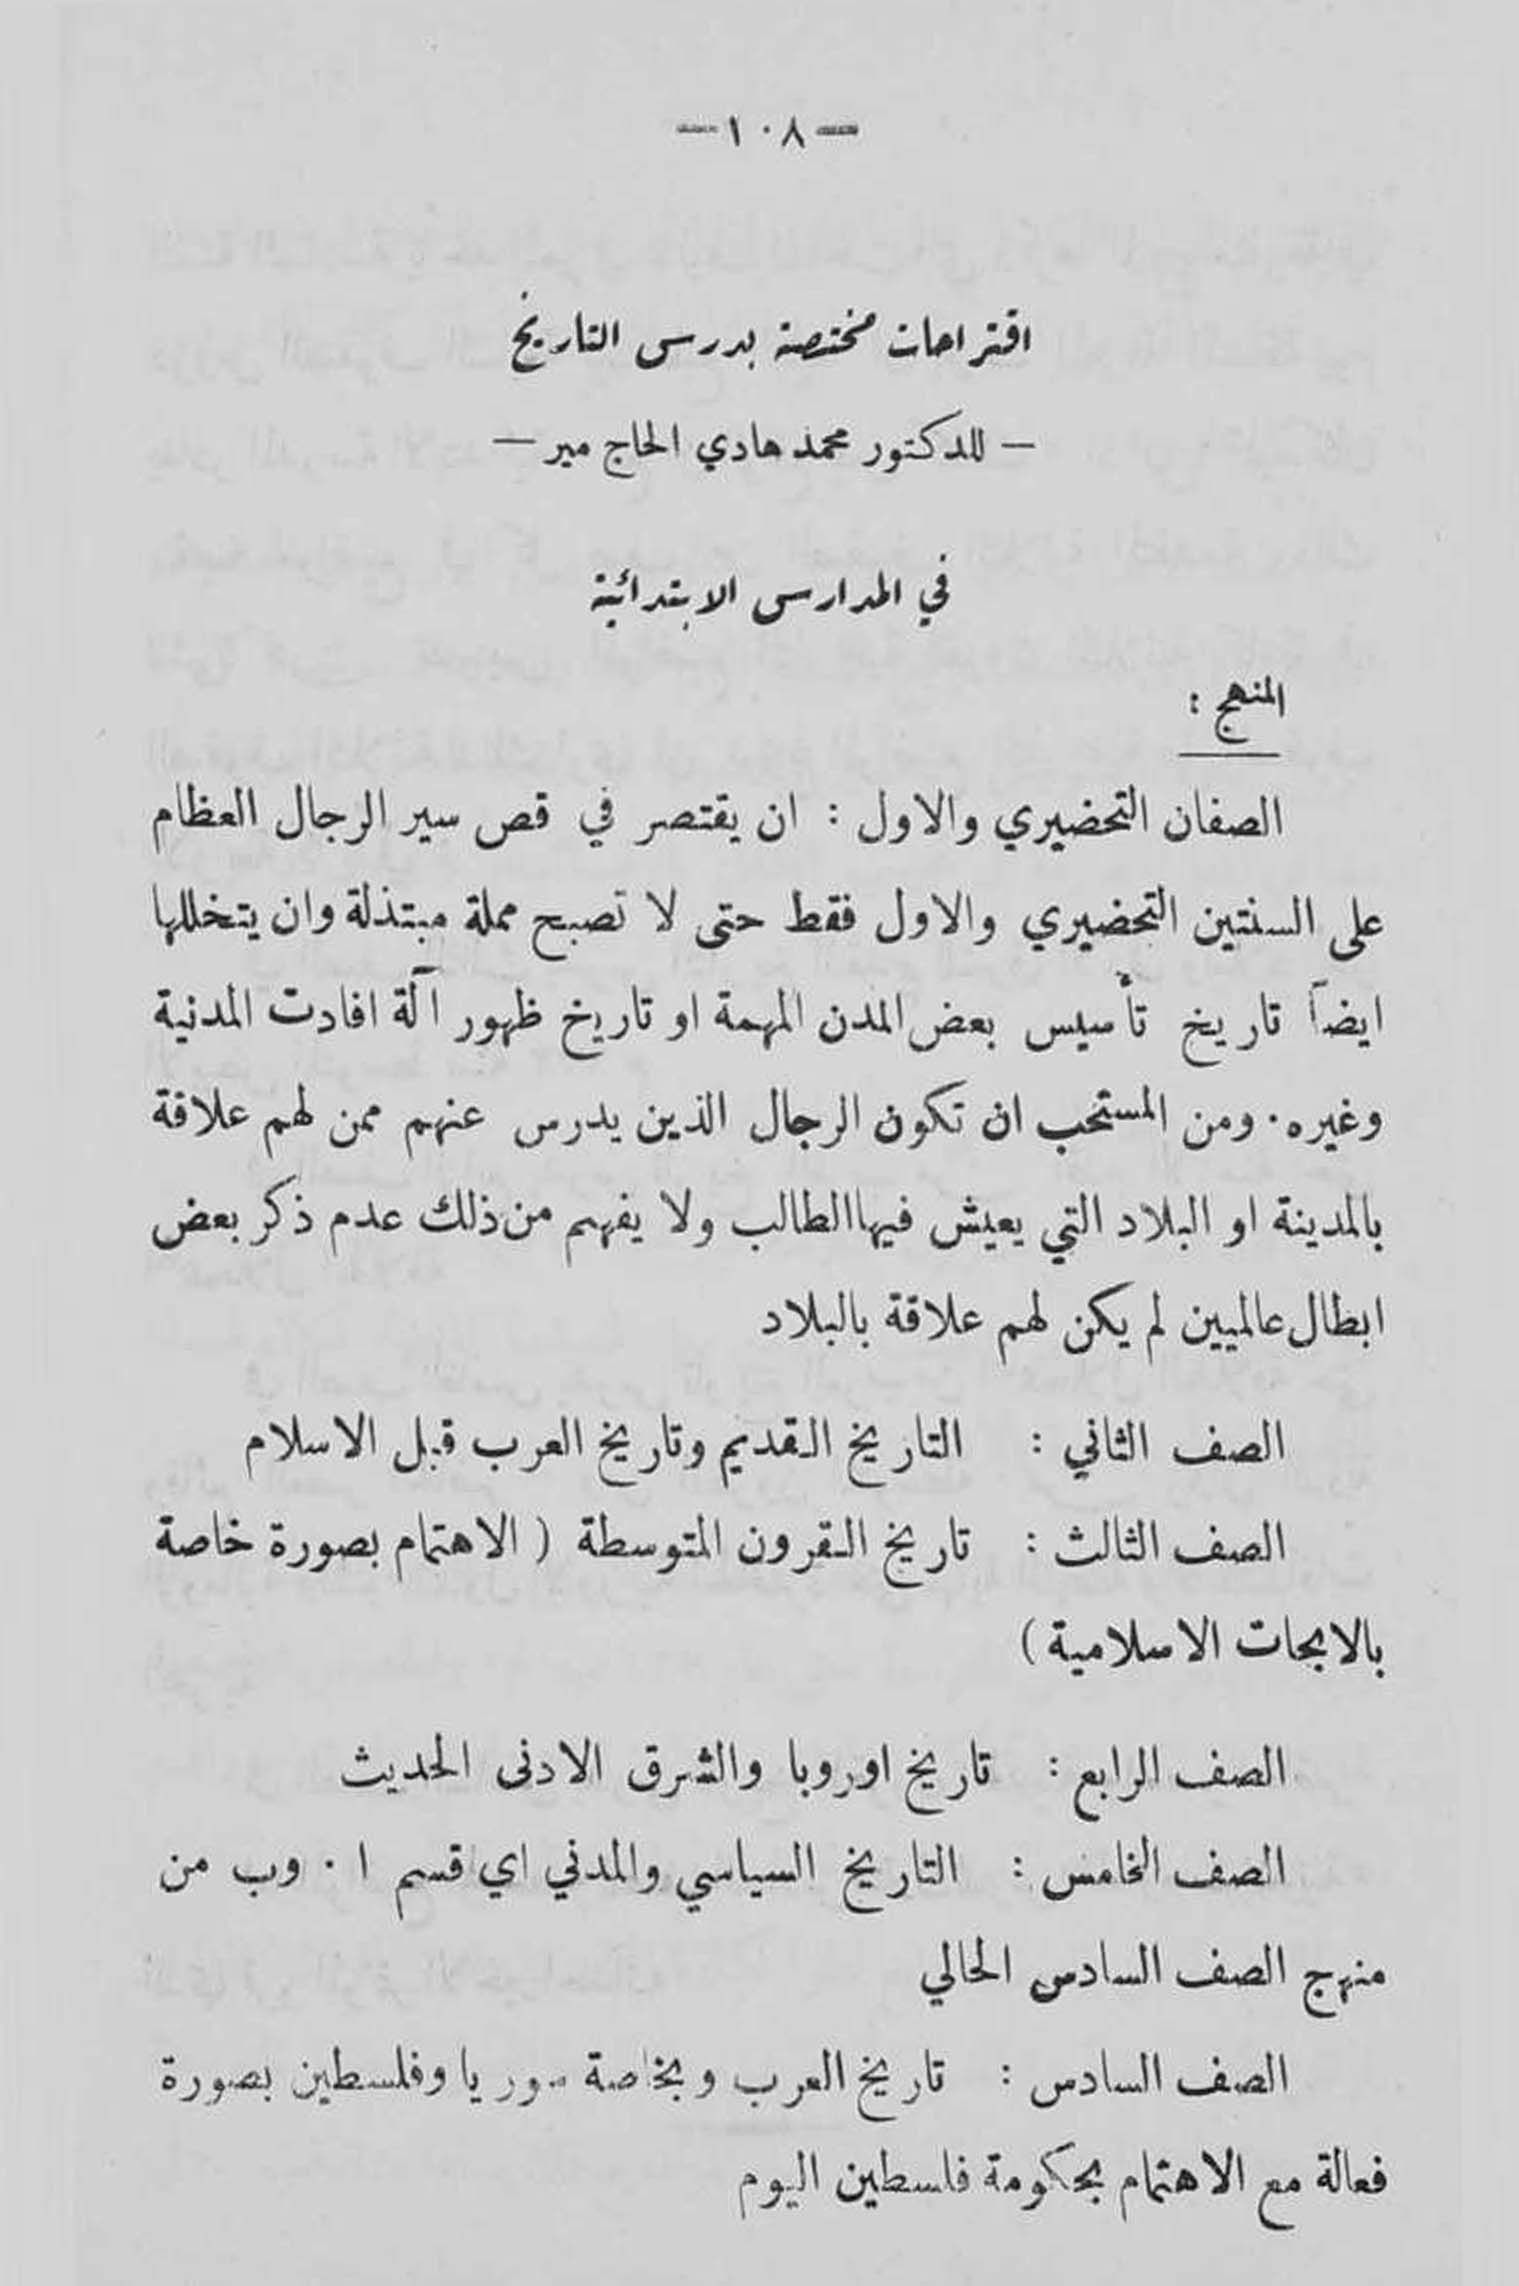 —١٠٨—
اقتراحات مختصة بدرس التاريخ
— للدكتور محمد هادي الحاج مير —
في المدارس الابتدائية
المنهج :
الصفان التحضيري والاول : ان يقتصر في قص سير الرجال العظام
على السنتين التحضيري والاول فقط حتى لا تصبح مملة مبتذلة وان يتخللها
ايضاً تاريخ تأسيس بعض المدن المهمة او تاريخ ظهور آلة افادت المدنية
وغيره . ومن المستحب ان تكون الرجال الذين يدرس عنهم ممن لهم علاقة
بالمدينة او البلاد التي يعيش فيها الطالب ولا يفهم من ذلك عدم ذكر بعض
ابطال عالميين لم يكن لهم علاقة بالبلاد
الصف الثاني : التاريخ القديم وتاريخ العرب قبل الاسلام
الصف الثالث : تاريخ القرون المتوسطة ( الاهتمام بصورة خاصة
بالابحاث الاسلامية )
الصف الرابع : تاريخ اوروبا والشرق الادنى الحديث
الصف الخامس : التاريخ السياسي والمدني اي قسم ا . وب من
منهج الصف السادس الحالي
الصف السادس : تاريخ العرب وبخاصة سوريا وفلسطين بصورة
فعالة مع الاهتمام بحكومة فلسطين اليوم